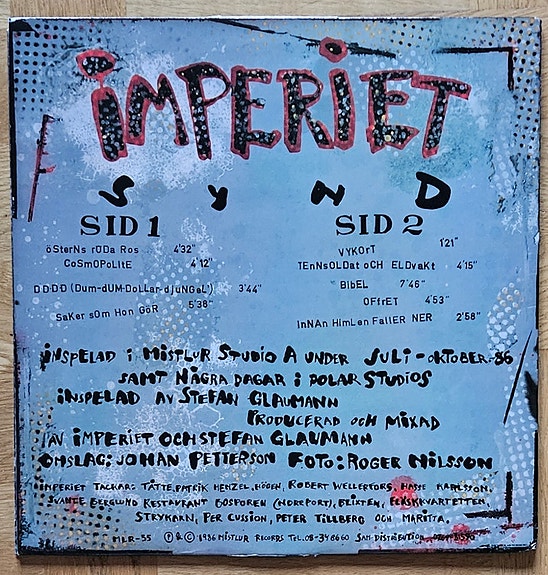 iMPERiET
SYND
SID 1
öSterNs röDa Ros... 4'32"
CoSmOPoLItE 4'12"
D.D.D.D (Dum-dUM-DoLLar-djUNGeL) 3'44"
SaKer sOm Hon GöR 5'38"
SID 2
VYKOrT 1'21"
TEnNsOLDat oCH ELDvaKt 4'15"
BibEL 7'46"
OFfrET 4'53"
InNAn HimLen FallER NER 2'58"
iNSPELAD i MiSTLUR STUDiO A UNDER JULI-OKTOBER-86
SAMT NÅGRA DAGAR i POLAR STUDiOS
iNSPELAD AV STEFAN GLAUMANN
PRODUCERAD OCH MiXAD
AV iMPERiET OCH STEFAN GLAUMANN
OMSLAG: JOHAN PETTERSON FOTO: ROGER NiLSSON
iMPERiET TACKAR: TÄTTE, PATRiK HENZEL, HÖGEN, ROBERT WELLERFORS, HASSE KARLSSON,
SVANTE BERGLUND RESTAURANT BOSPOREN (NOREPORT), BLiXTEN, FLÄSKKVARTETTEN,
STRYKARN, PER CUSSiON, PETER TiLLBERG OCH MARiTTA.
MLR-55 Ⓟ & © 1986 MiSTLUR RECORDS TEL. 08-34 86 60 SAM-DiSTRiBUTiON